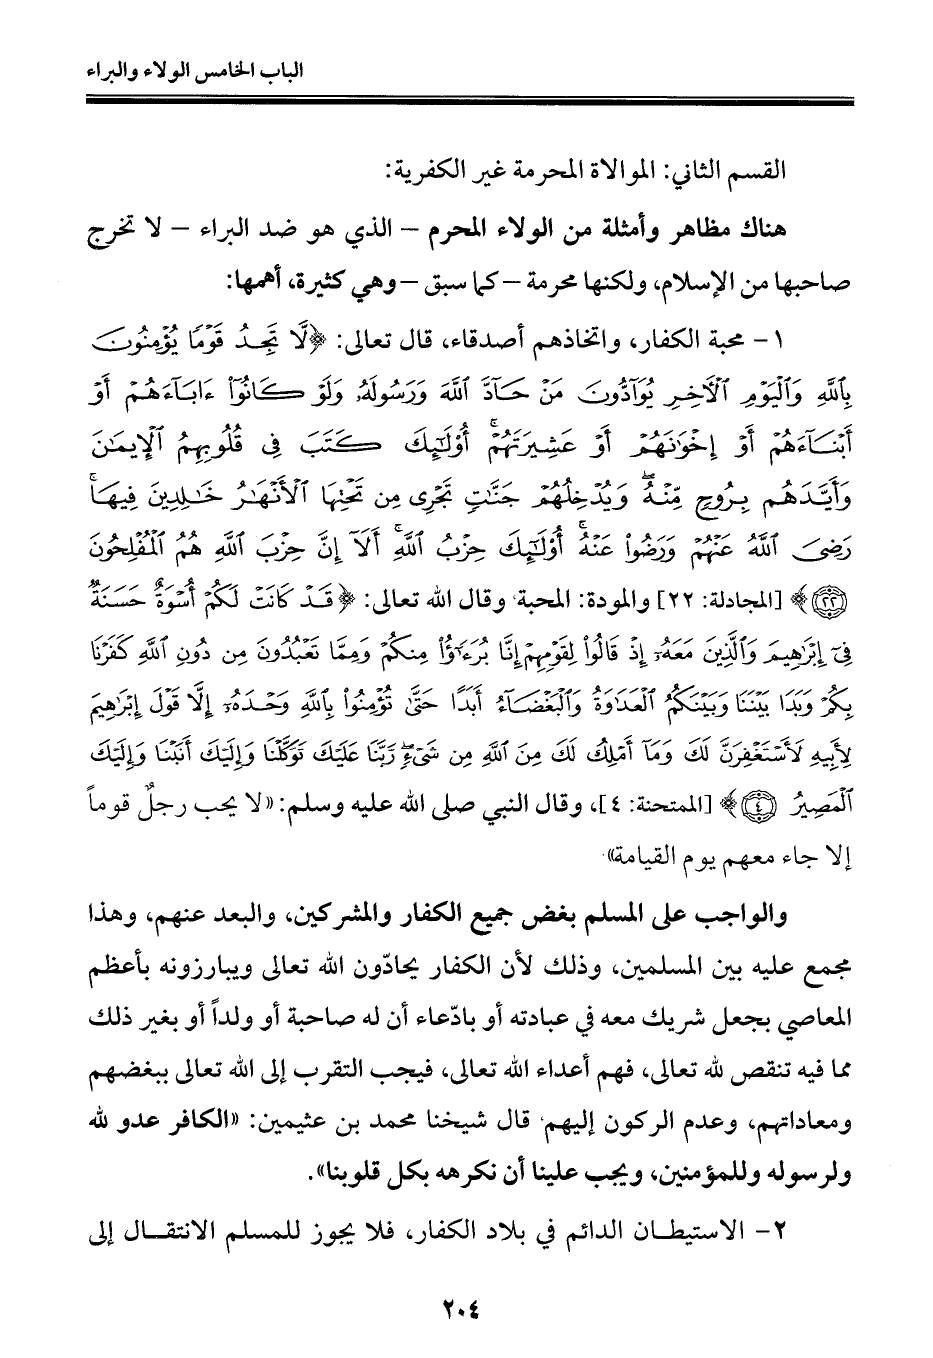 الباب الخامس الولاء والبراء
القسم الثاني: الموالاة المحرمة غير الكفرية:
هناك مظاهر وأمثلة من الولاء المحرم – الذي هو ضد البراء – لا تخرج
صاحبها من الإسلام، ولكنها محرمة – كما سبق – وهي كثيرة، أهمها:
١- محبة الكفار، واتخاذهم أصدقاء، قال تعالى: ﴿لَّا تَجِدُ قَوْمًا يُؤْمِنُونَ
بِٱللَّهِ وَٱلْيَوْمِ ٱلْأَخِرِ يُوَآدُّونَ مَنْ حَآدَّ ٱللَّهَ وَرَسُولَهُۥ وَلَوْ كَانُوٓا۟ ءَابَآءَهُمْ أَوْ
أَبْنَآءَهُمْ أَوْ إِخْوَٰنَهُمْ أَوْ عَشِيرَتَهُمْ ۚ أُو۟لَٰٓئِكَ كَتَبَ فِى قُلُوبِهِمُ ٱلْإِيمَٰنَ
وَأَيَّدَهُم بِرُوحٍ مِّنْهُ ۖ وَيُدْخِلُهُمْ جَنَّٰتٍ تَجْرِى مِن تَحْتِهَا ٱلْأَنْهَٰرُ خَٰلِدِينَ فِيهَا ۚ
رَضِىَ ٱللَّهُ عَنْهُمْ وَرَضُوا۟ عَنْهُ ۚ أُو۟لَٰٓئِكَ حِزْبُ ٱللَّهِ ۚ أَلَآ إِنَّ حِزْبَ ٱللَّهِ هُمُ ٱلْمُفْلِحُونَ
(٢٢)﴾ [المجادلة: ٢٢] والمودة: المحبة. وقال الله تعالى: ﴿قَدْ كَانَتْ لَكُمْ أُسْوَةٌ حَسَنَةٌ
فِىٓ إِبْرَٰهِيمَ وَٱلَّذِينَ مَعَهُۥٓ إِذْ قَالُوا۟ لِقَوْمِهِمْ إِنَّا بُرَءَٰٓؤُا۟ مِنكُمْ وَمِمَّا تَعْبُدُونَ مِن دُونِ ٱللَّهِ كَفَرْنَا
بِكُمْ وَبَدَا بَيْنَنَا وَبَيْنَكُمُ ٱلْعَدَٰوَةُ وَٱلْبَغْضَآءُ أَبَدًا حَتَّىٰ تُؤْمِنُوا۟ بِٱللَّهِ وَحْدَهُۥٓ إِلَّا قَوْلَ إِبْرَٰهِيمَ
لِأَبِيهِ لَأَسْتَغْفِرَنَّ لَكَ وَمَآ أَمْلِكُ لَكَ مِنَ ٱللَّهِ مِن شَىْءٍ ۖ رَّبَّنَا عَلَيْكَ تَوَكَّلْنَا وَإِلَيْكَ أَنَبْنَا وَإِلَيْكَ
ٱلْمَصِيرُ (٤)﴾ [الممتحنة: ٤]، وقال النبي صلى الله عليه وسلم: «لا يحب رجلٌ قوماً
إلا جاء معهم يوم القيامة».
والواجب على المسلم بغض جميع الكفار والمشركين، والبعد عنهم، وهذا
مجمع عليه بين المسلمين، وذلك لأن الكفار يحادّون الله تعالى ويبارزونه بأعظم
المعاصي بجعل شريك معه في عبادته أو بادّعاء أن له صاحبة أو ولداً أو بغير ذلك
مما فيه تنقص لله تعالى، فهم أعداء الله تعالى، فيجب التقرب إلى الله تعالى ببغضهم
ومعاداتهم، وعدم الركون إليهم. قال شيخنا محمد بن عثيمين: «الكافر عدو لله
ولرسوله وللمؤمنين، ويجب علينا أن نكرهه بكل قلوبنا».
٢- الاستيطان الدائم في بلاد الكفار، فلا يجوز للمسلم الانتقال إلى
٢٠٤